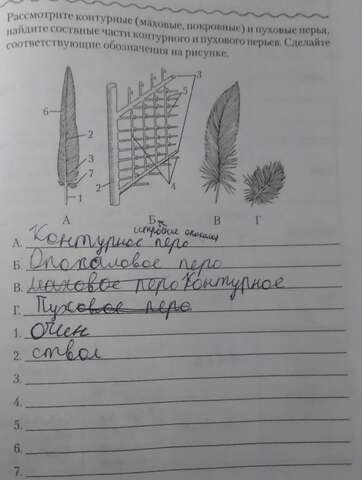 Рассмотрите контурные (маховые, покровные) и пуховые перья,
найдите составные части контурного и пухового перьев. Сделайте
соответствующие обозначения на рисунке.
6 2 3 7 1
2 3 5 4
А Б В Г
строение опахала
А. Контурное перо
Б. Опохаловое перо
В. маховое перо Контурное
Г. Пуховое перо
1. Очин
2. ствол
3.
4.
5.
6.
7.